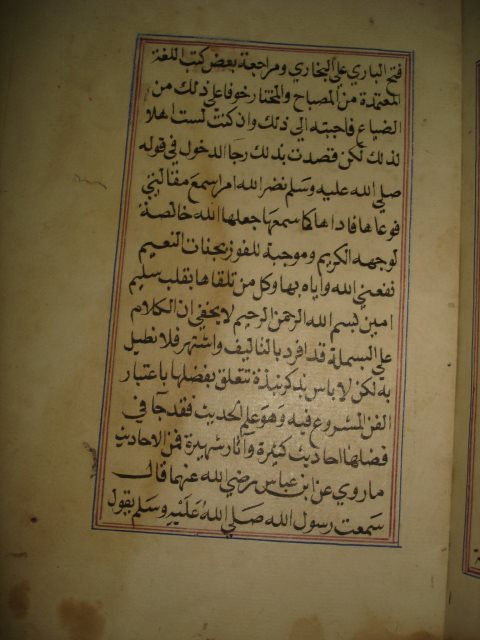 فتح الباري علي البخاري ومراجعة بعض كتب اللغة
المعتمدة من المصباح والمختار خوفا علي ذلك من
الضياع فاجبته الي ذلك وان كنت لست اهلا
لذلك لكن قصدت بذلك رجا الدخول في قوله
صلي الله عليه وسلم نضر الله امرا سمع مقالتي
فوعاها فاداها كما سمعها جعلها الله خالصة
لوجهه الكريم وموجبة للفوز بجنات النعيم
نفعني الله واياه بها وكل من تلقاها بقلب سليم
امين بسم الله الرحمن الرحيم لا يخفي ان الكلام
علي البسملة قد افرد بالتاليف واشتهر فلا نطيل
به لكن لا باس بذكر نبذة تتعلق بفضلها باعتبار
الفن المشروع فيه وهو علم الحديث فقد جا في
فضلها احاديث كثيرة وآثار شهيرة فمن الاحاديث
ما روي عن ابن عباس رضي الله عنهما قال
سمعت رسول الله صلي الله عليه وسلم يقول